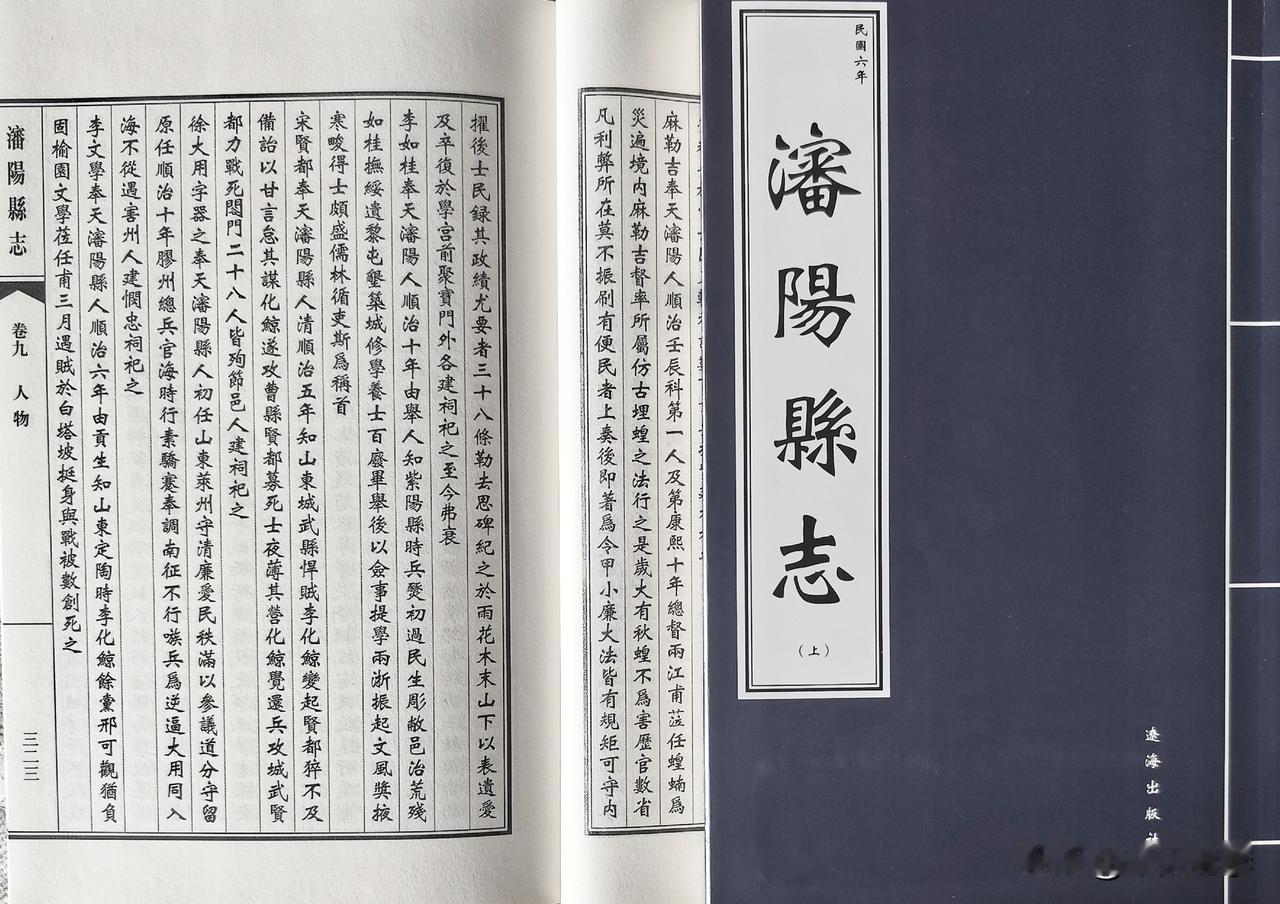 民國六年
瀋陽縣志
（上）
遼海出版社
麻勒吉奉天瀋陽人順治壬辰科第一人及第康熙十年總督兩江甫蒞任蝗蝻爲
災遍境内麻勒吉督率所屬仿古埋蝗之法行之是歲大有秋蝗不爲害歷官數省
凡利弊所在莫不振刷有便民者上奏後即著爲令甲小廉大法皆有規矩可守内
擢後士民録其政績尤要者三十八條勒去思碑紀之於雨花木末山下以表遺愛
及卒復於學宫前聚寶門外各建祠祀之至今弗衰
李如桂奉天瀋陽人順治十年由舉人知紫陽縣時兵燹初過民生彫敝邑治荒殘
如桂撫綏遺黎屯墾築城修學養士百廢畢舉後以僉事提學兩浙振起文風奬掖
寒畯得士頗盛儒林循吏斯爲稱首
宋賢都奉天瀋陽縣人清順治五年知山東城武縣悍賊李化鯨變起賢都猝不及
備詒以甘言怠其謀化鯨遂攻曹縣賢都募死士夜薄其營化鯨覺還兵攻城武賢
都力戰死閤門二十八人皆殉節邑人建祠祀之
徐大用字器之奉天瀋陽縣人初任山東萊州守清廉愛民秩滿以參議道分守留
原任順治十年膠州總兵官海時行素驕蹇奉調南征不行嗾兵爲逆逼大用同入
海不從遇害州人建愍忠祠祀之
李文學奉天瀋陽縣人順治六年由貢生知山東定陶時李化鯨餘黨邢可觀猶負
固榆園文學莅任甫三月遇賊於白塔坡挺身與戰被數創死之
瀋陽縣志
卷九 人物
三二三